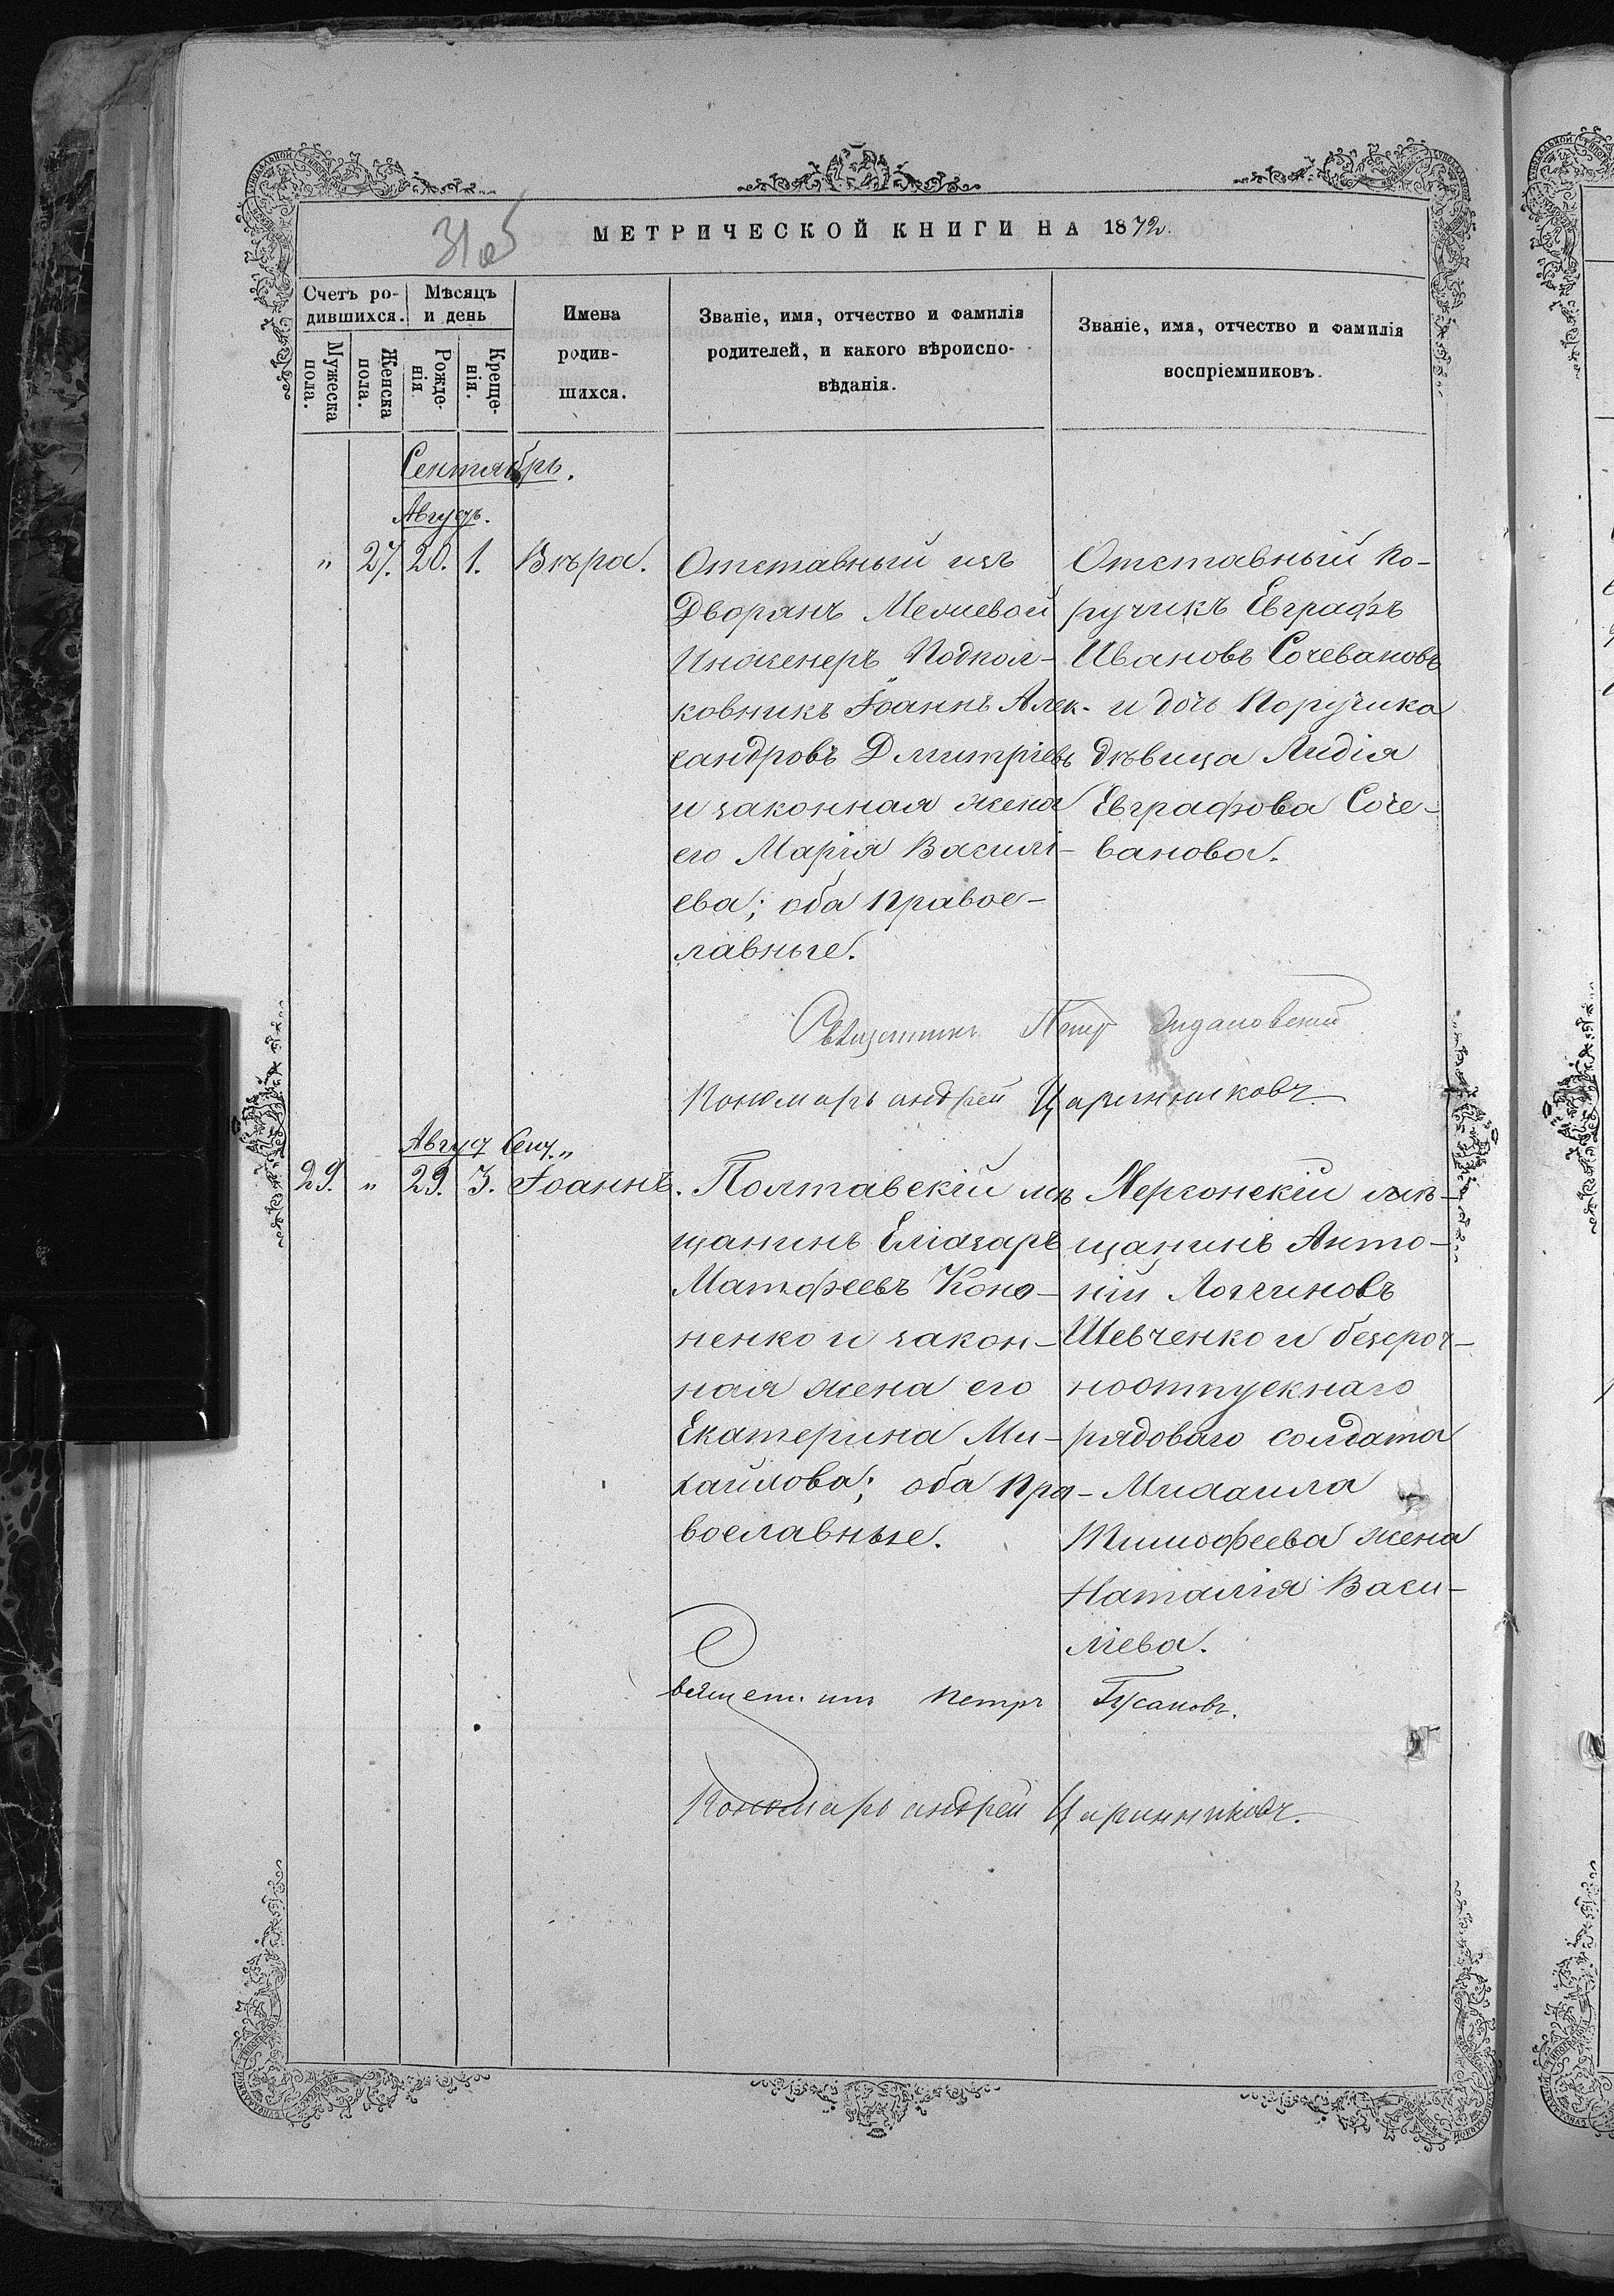 31об
МЕТРИЧЕСКОЙ КНИГИ НА 1872.
Счетъ ро-
дившихся.
Мѣсяцъ
и день
Имена
родив-
шихся.
Званіе, имя, отчество и фамилія
родителей, и какого вѣроиспо-
вѣданія.
Званіе, имя, отчество и фамилія
воспріемниковъ.
Мужеска
пола.
Женска
пола.
Рожде-
нія
Креще-
нія.
Сентябрь.
Августъ.
" 27. 20. 1. Вѣра.
Отставный изъ
Дворянъ Межевой
Инженеръ Подпол-
ковникъ Іоаннъ Алек-
сандровъ Дмитріевъ
и законная жена
его Марія Василі-
ева; оба Правос-
лавные.
Отставный По-
ручикъ Евграфъ
Ивановъ Сочевановъ
и дочь Поручика
дѣвица Лидія
Евграфова Соче-
ванова.
Священникъ Петръ
Пономарь Андрей Царинниковъ
Август Сен. "
29. " 29. 3. Іоаннъ.
Полтавскій мѣ
щанинъ Еліазаръ
Матфеевъ Коно-
ненко и закон-
ная жена его
Екатерина Ми-
хайлова; оба Пра-
вославные.
Херсонскій мѣ-
щанинъ Анто-
ній Логгиновъ
Шевченко и безсроч-
ноотпускнаго
рядоваго солдата
Михаила
Тимофеева жена
Наталія Васи-
ліева.
Священникъ Петръ Гусаковъ.
Пономарь Андрей Царинниковъ.